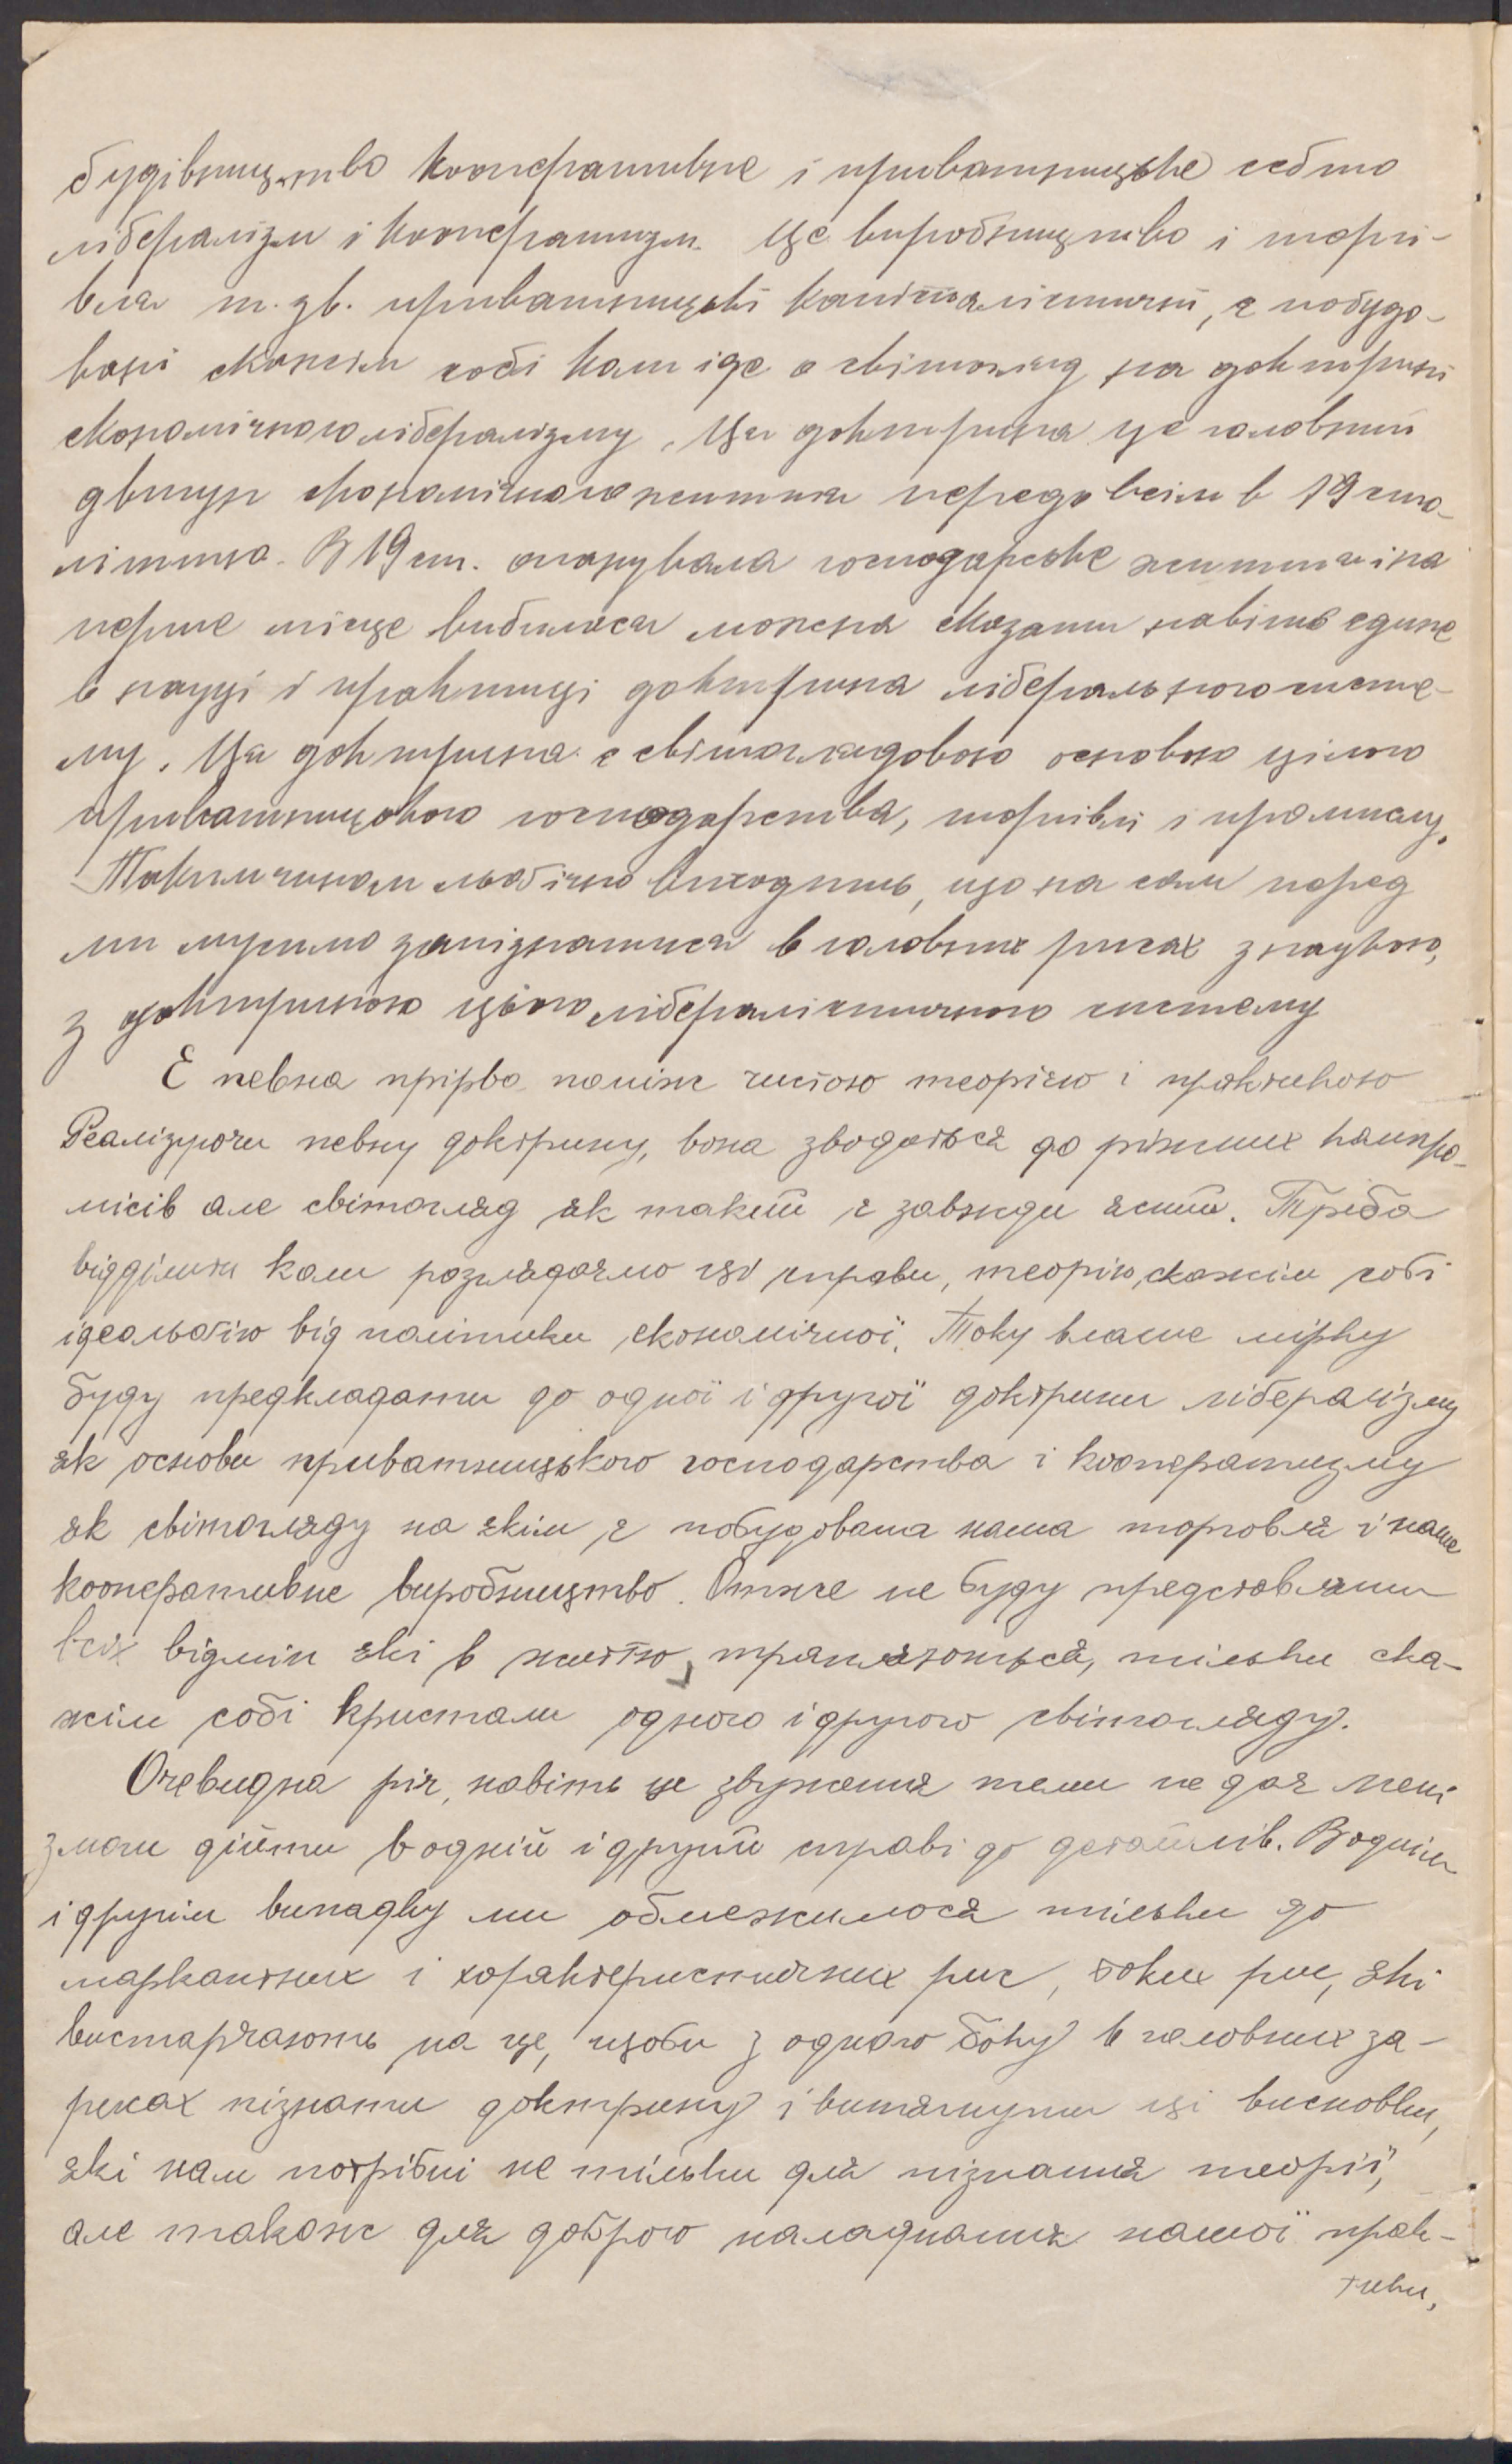 будівництво кооперативне і приватницьке себто
лібералізм і кооператизм. Це виробництво і торгі-
вля т. зв. приватницькі капіталістичні, є побудо-
вані скажім собі кат іде о світогляд на доктрині
економічного лібералізму. Ця доктрина це головний
двигун економічного життя передовсім в 19 сто-
літтю. В 19 ст. опанувала господарське життя і на
перше місце вибилася можна сказати навіть єдине
в науці і практиці доктрина ліберального систе-
му. Ця доктрина є світоглядовою основою цілого
приватницького господарства, торгівлі і промислу.
Таким чином льогічно виходить, що на сам перед
ми мусимо запізнатися в головних рисах з наукою,
з доктриною цього лібералістичного систему
Є певна прірва поміж чистою теорією і практикою
Реалізуючи певну доктрину, вона зводиться до ріжних компро-
місів але світогляд як такий є завжди ясний. Треба
відділити коли розглядаємо цю справи, теорію, скажім собі
ідеольогію від політики економічної. Таку власне мірку
буду предкладати до одної і другої доктрини лібералізму
як основи приватницького господарства і кооператизму
як світогляду на якім є побудована наша торговля і наше
кооперативне виробництво. Отже не буду представляти
всіх відмін які в життю трапляються, тільки ска-
жім собі кристали одного і другого світогляду.
Очевидна річ, навіть це звуження теми не дає мені
змоги дійти в одній і другій справі до детайлів. В однім
і другім випадку ми обмежимося тільки до
маркантних і характеристичних рис, таких рис, які
вистарчають на це, щоби з одного боку в головних за-
рисах пізнати доктрину і витягнути ці висновки,
які нам потрібні не тільки для пізнання теорії,
але також для доброго наладнання нашої прак-
тики,